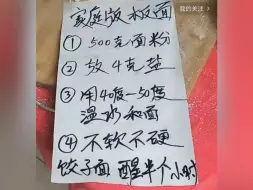 我的关注
家庭版板面
① 500克面粉
② 放4克盐
③ 用40度-50度
温水和面
④ 不软不硬
饺子面 醒半个小时